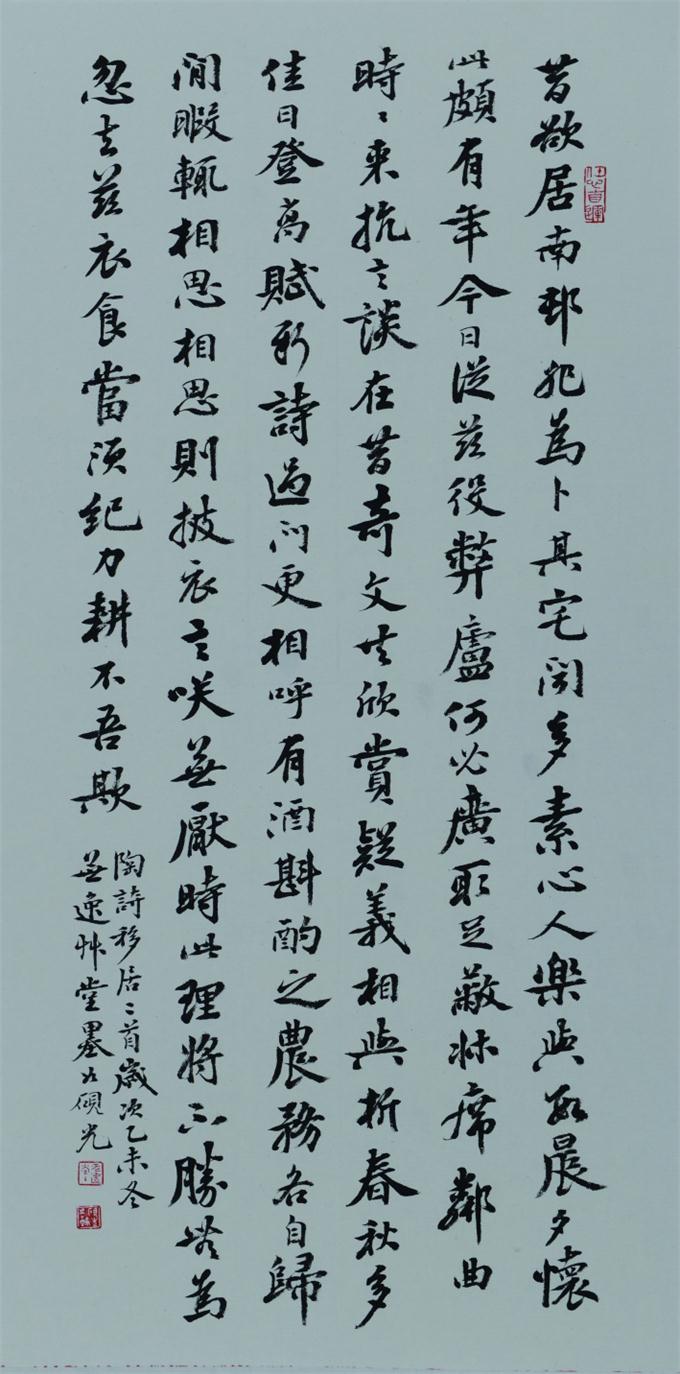 昔欲居南邨非為卜其宅聞多素心人樂與數晨夕懷
此頗有年今日從茲役弊廬何必廣取足蔽牀席鄰曲
時〻來抗言談在昔奇文共欣賞疑義相與析春秋多
佳日登高賦新詩過門更相呼有酒斟酌之農務各自歸
閒暇輒相思相思則披衣言咲無厭時此理將不勝無為
忽去茲衣食當須紀力耕不吾欺
陶詩移居二首歲次乙未冬
無逸艸堂墨碩光